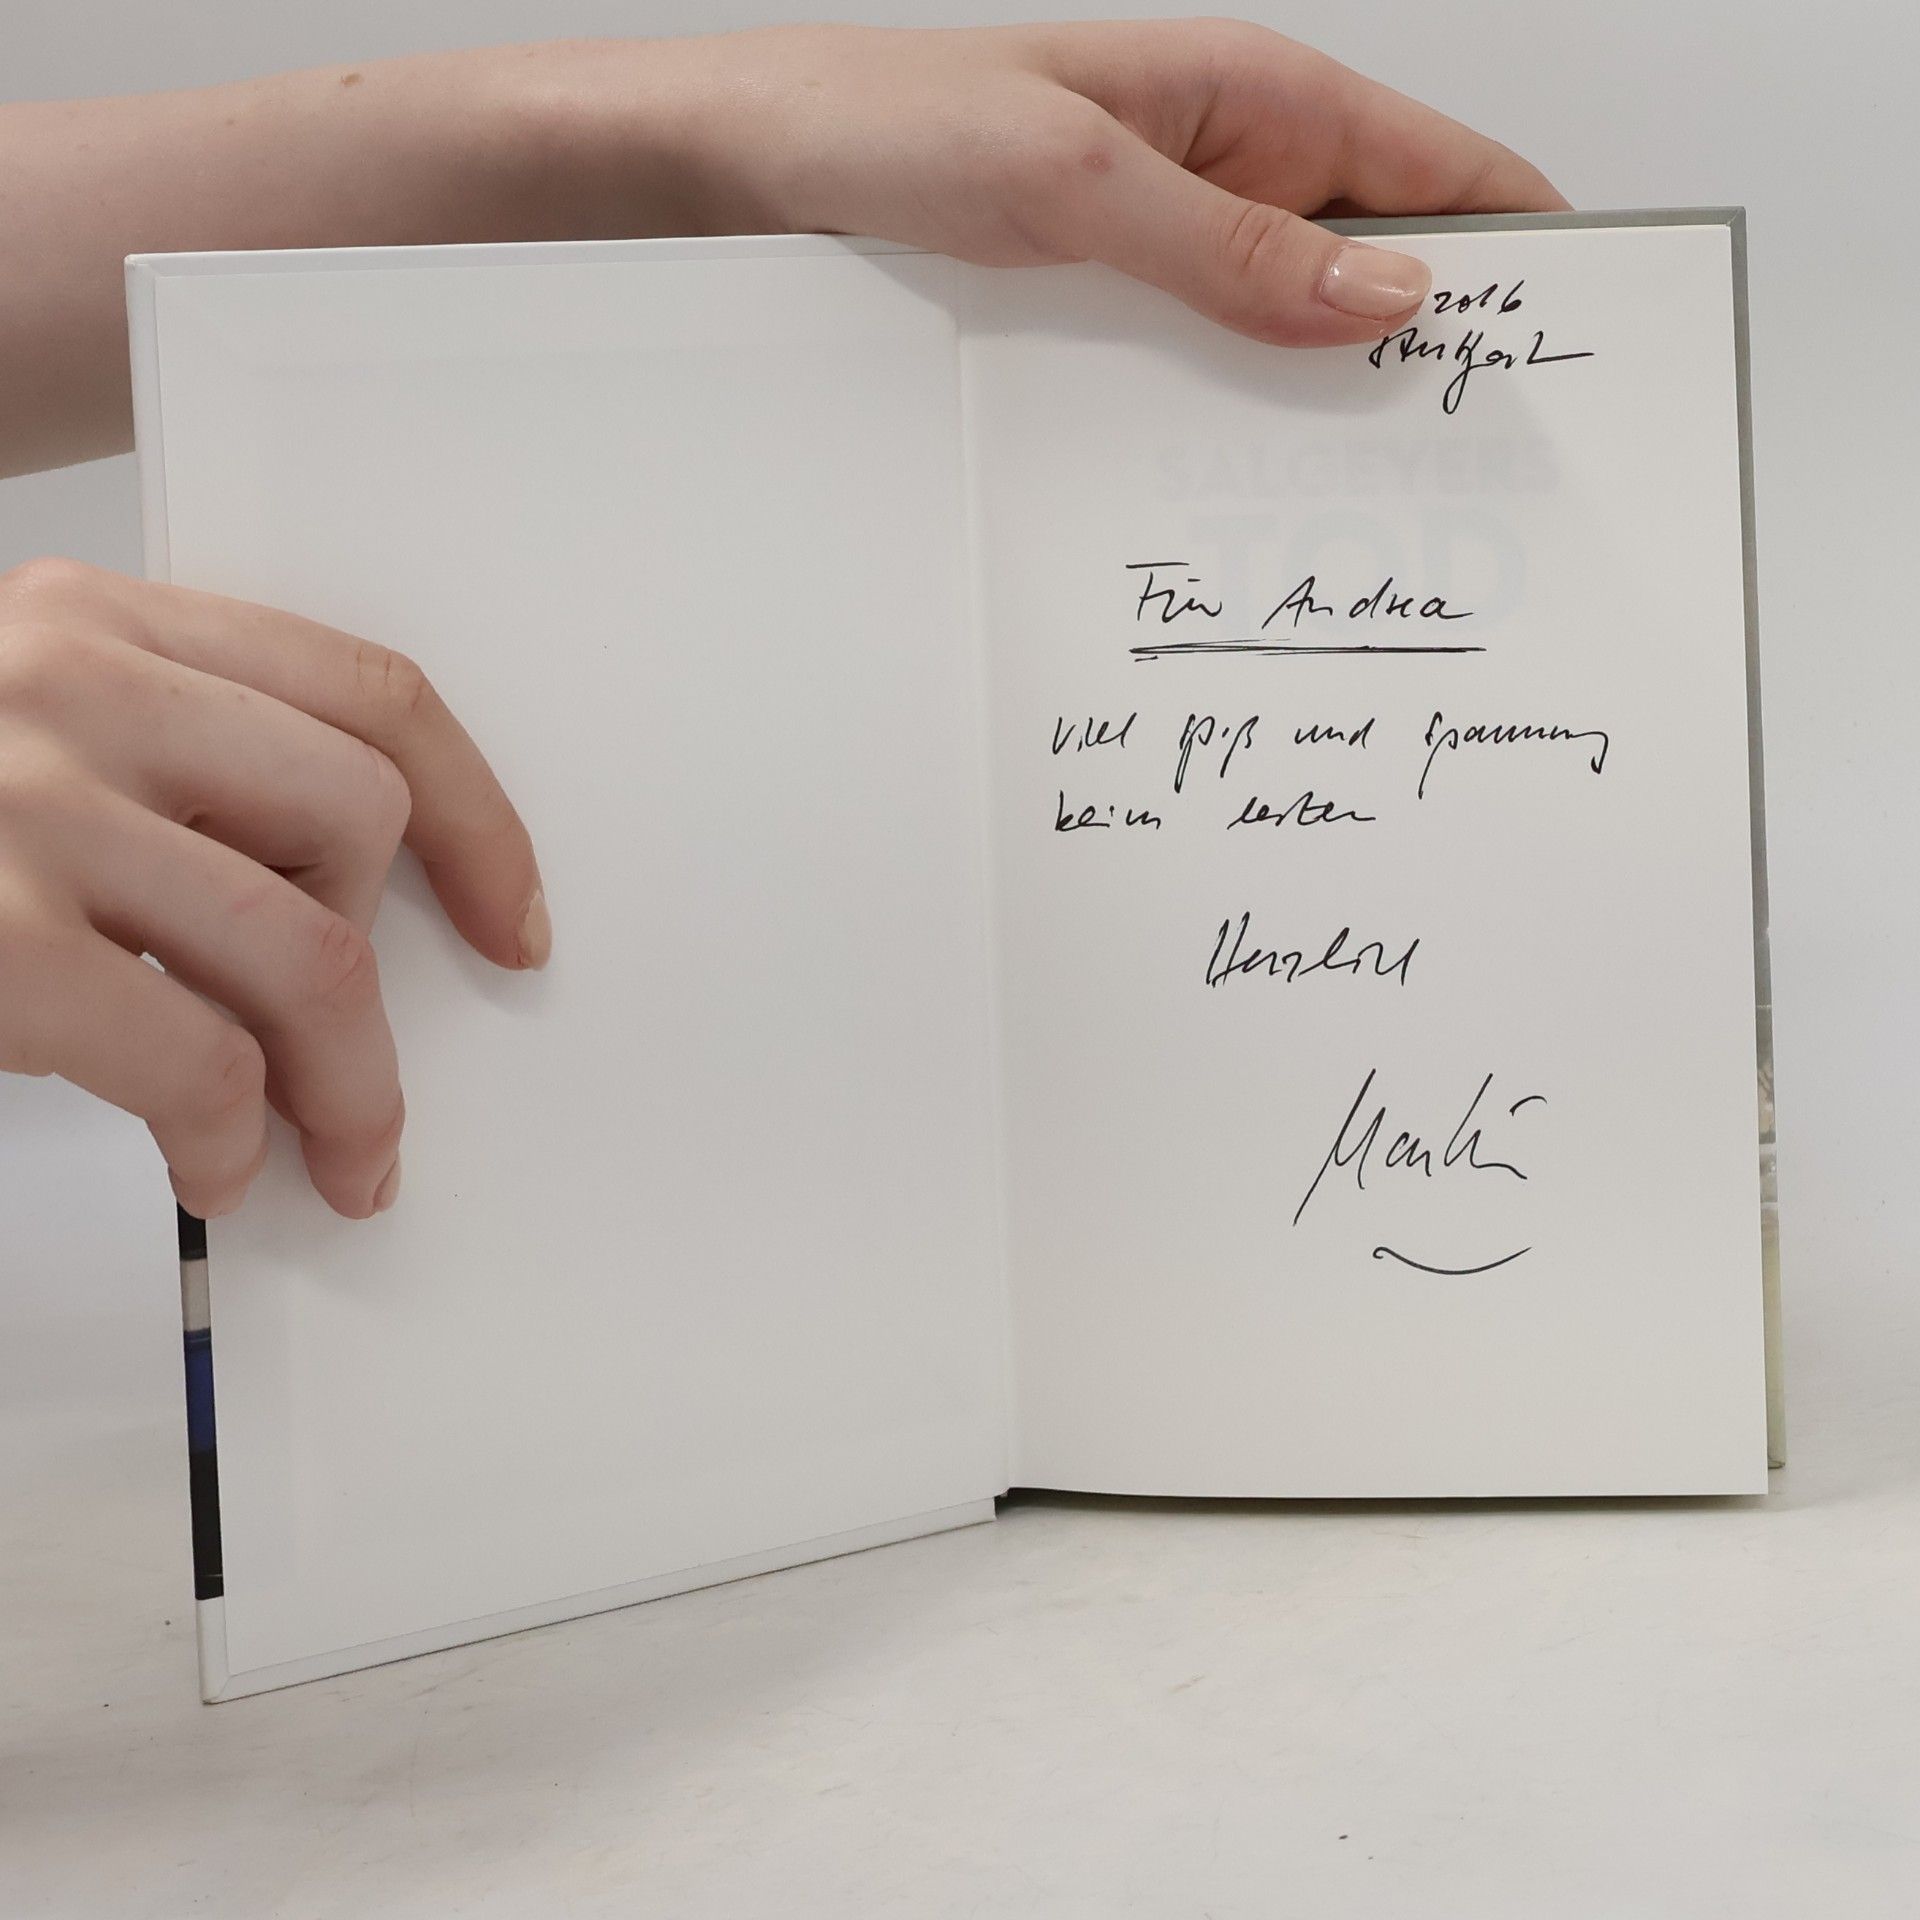 2016
Stuttgart
SALGEYERS
TOD
Für Andrea
viel spaß und spannung
beim lesen
Herzlich
Martin